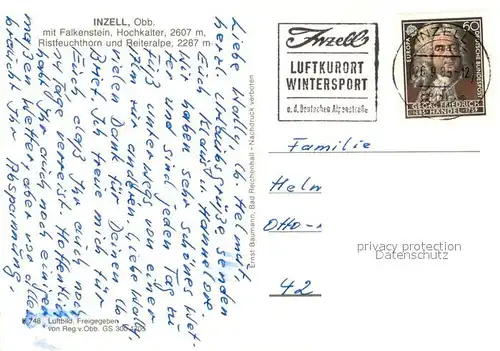 INZELL, Obb.
mit Falkenstein, Hochkalter, 2607 m,
Ristfeuchthorn und Reiteralpe, 2287 m
Liebe Walli, lb. Helmut,
herzl. Urlaubsgrüße senden
Euch Klaus u. Hannelore.
Wir haben sehr schönes Wet-
ter und sind jeden Tag zu
Fuß unterwegs von einer
Alm zur andern. Liebe Walli,
vielen Dank für Deinen lb
Brief. Ich freue mich für
Euch, daß Ihr auch noch
14 Tage verreist. Hoffentlich
habt Ihr auch noch einiger-
maßen Wetter, aber vor allem
braucht Ihr Abspannung.
K 748 Luftbild. Freigegeben
von Reg. v. Obb. GS 300
Ernst Baumann, Bad Reichenhall - Nachdruck verboten
Inzell
LUFTKURORT
WINTERSPORT
a. d. Deutschen Alpenstraße
INZELL
26.9.85-12
EUROPA
60
DEUTSCHE BUNDESPOST
GEORG FRIEDRICH
HÄNDEL
1685 1759
Familie
Helm
Otto-
42
privacy protection
Handmann